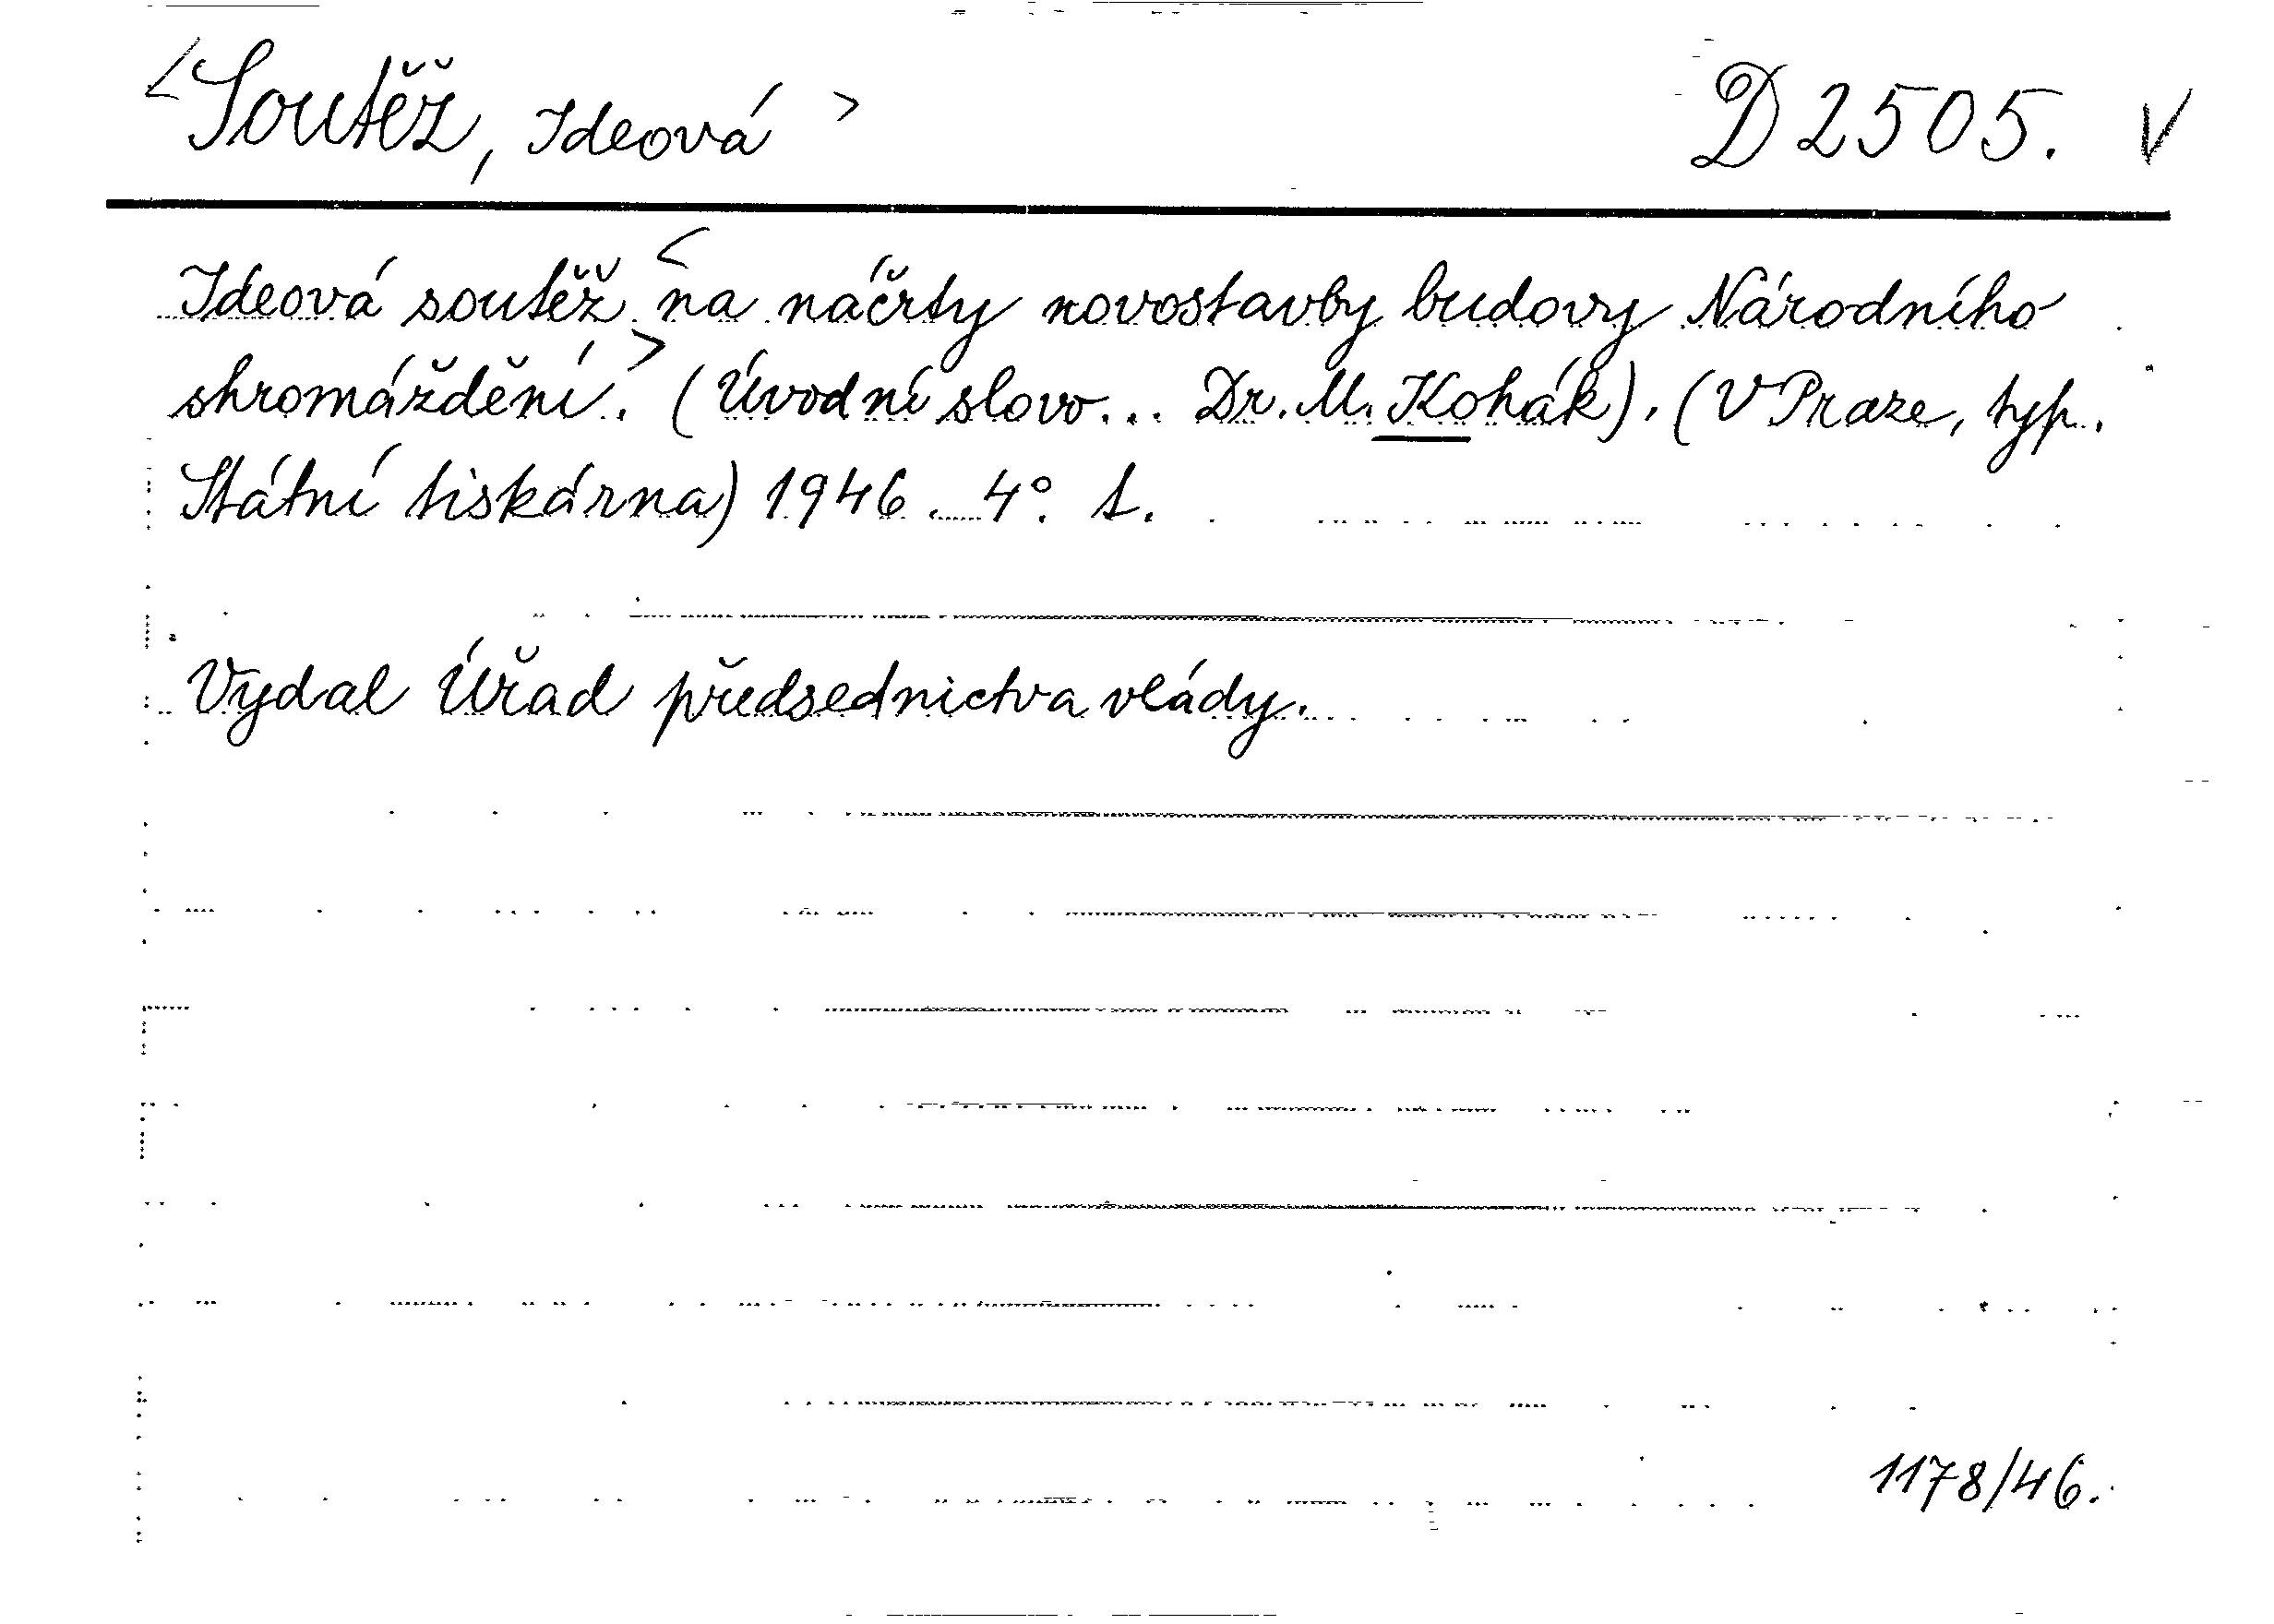 <Soutěž, Ideová> D 2505. V
Ideová soutěž <na náčrty novostavby budovy Národního
shromáždění.> (Úvodní slovo... Dr. M. Kohák). (V Praze, typ.
Státní tiskárna) 1946. 4°. 1.
Vydal Úřad předsednictva vlády.
1178/46.